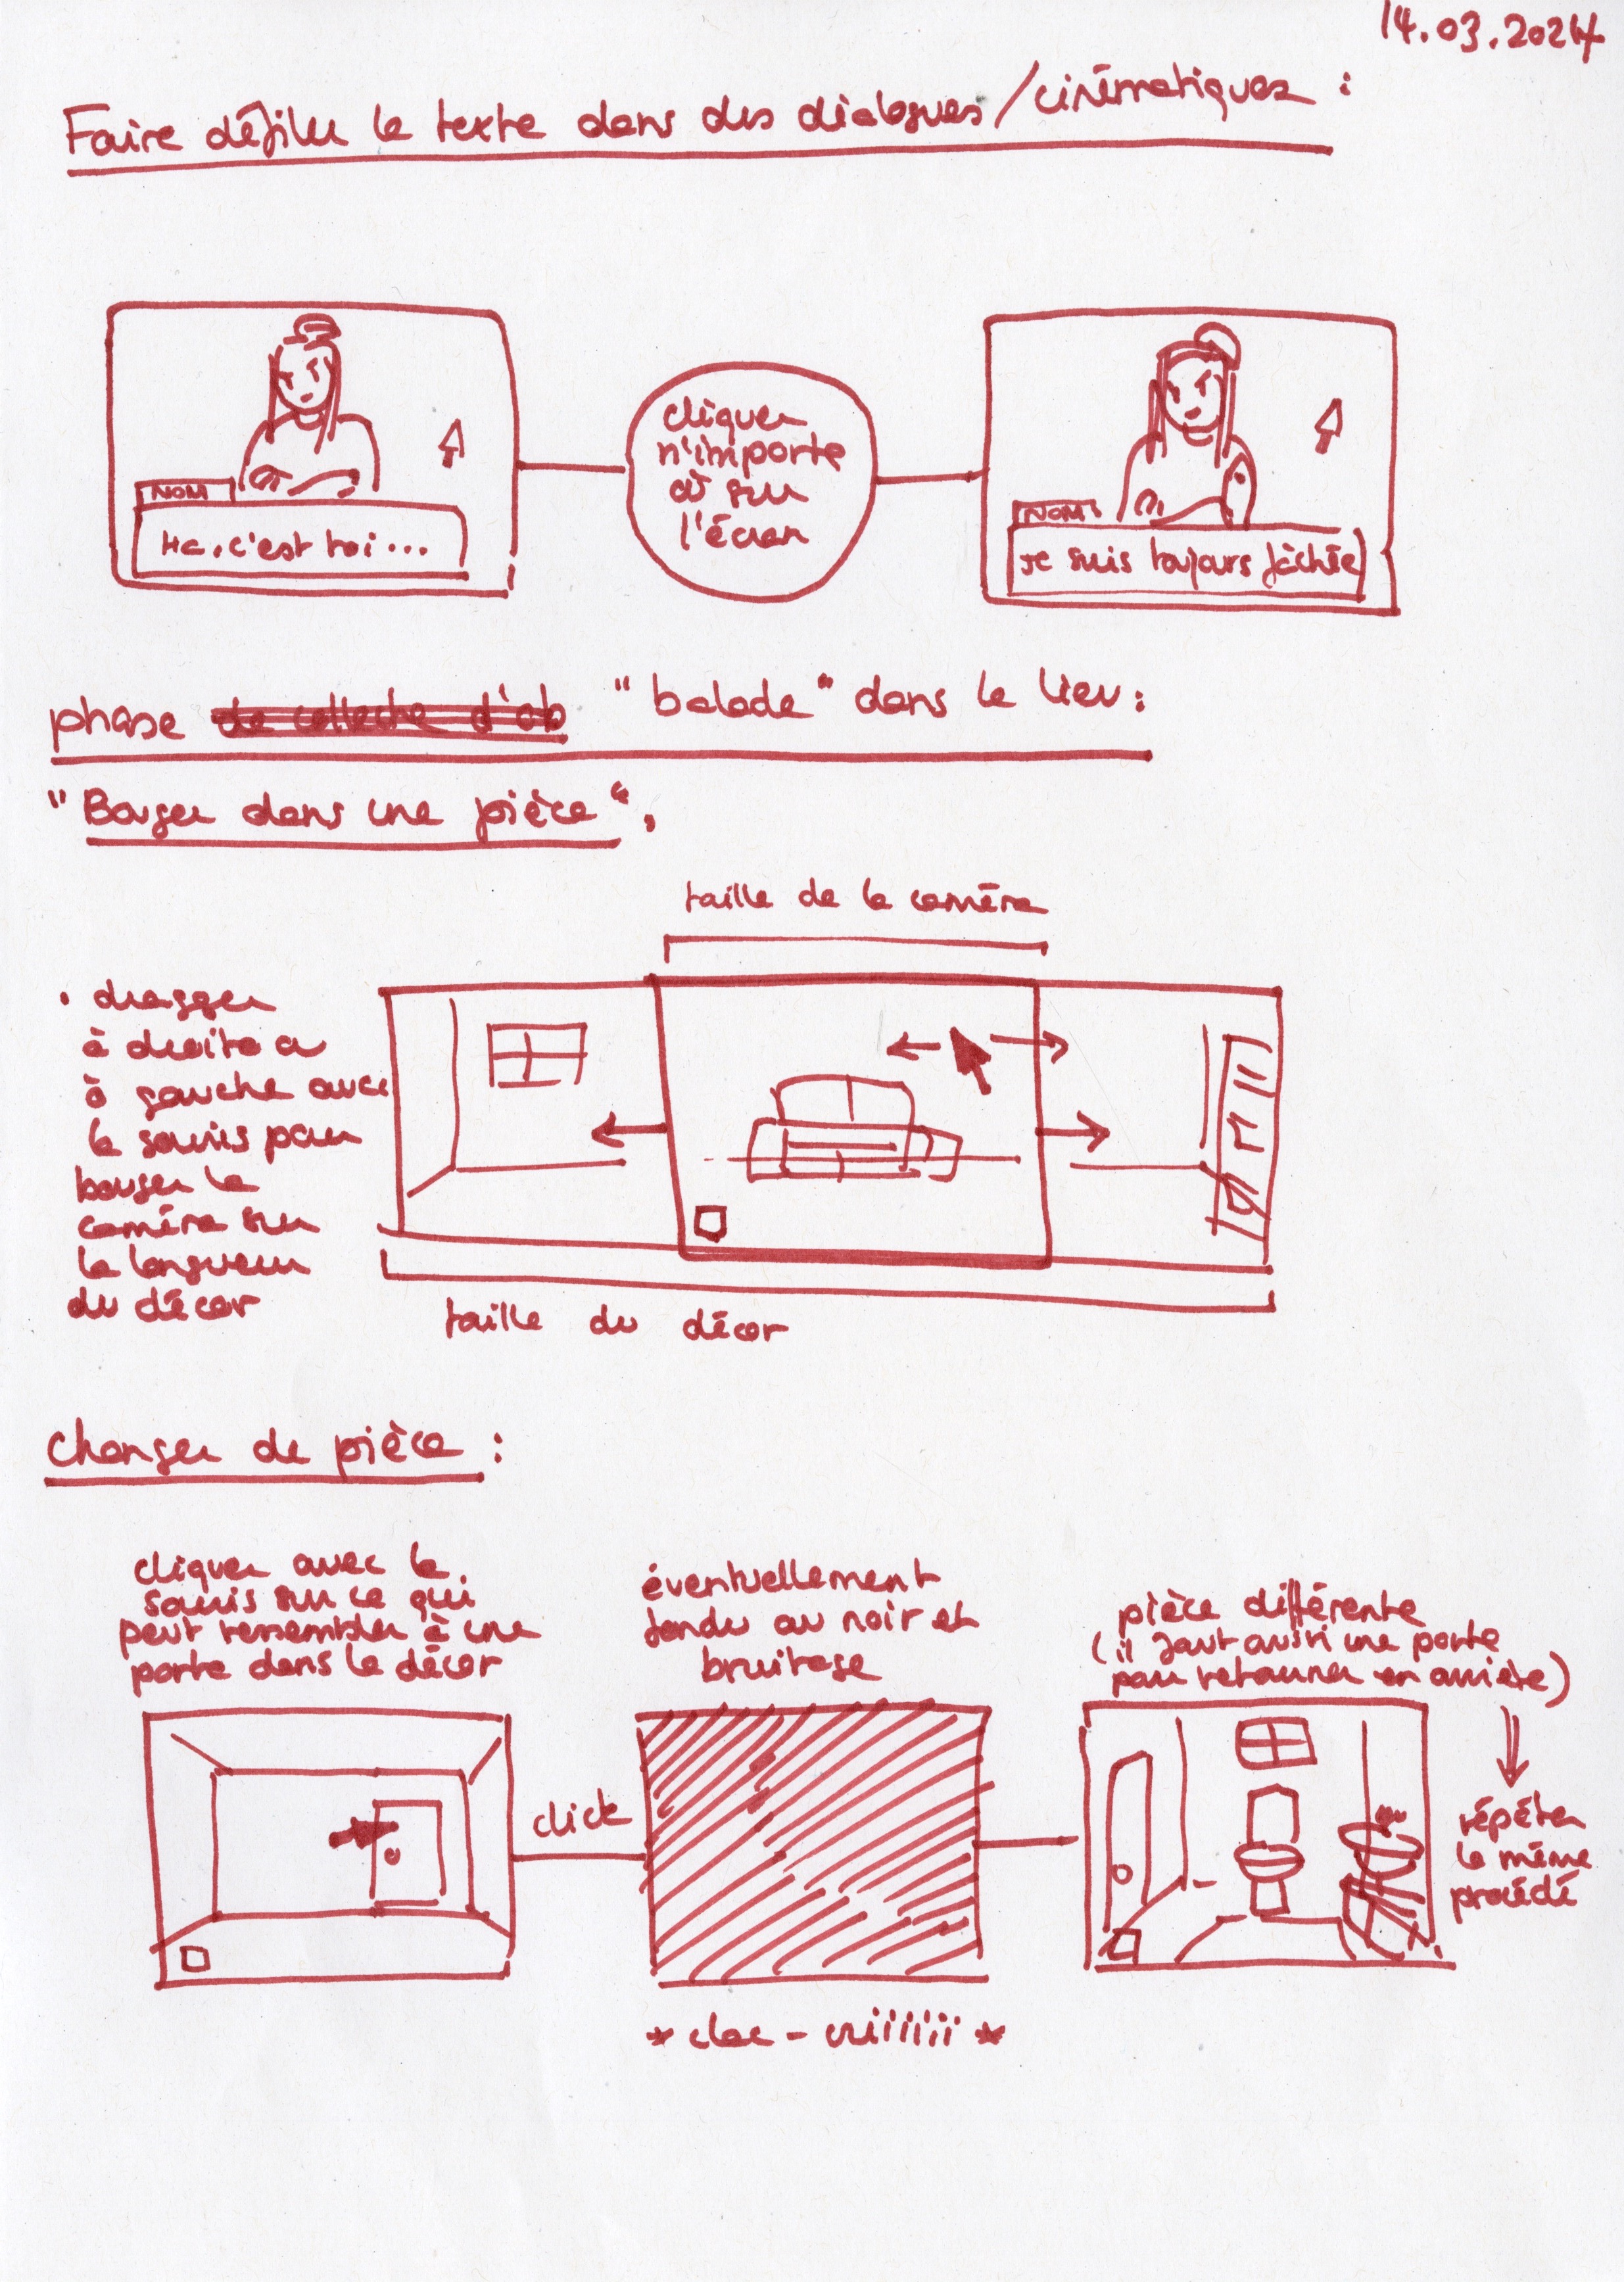 14.03.2024
Faire défiler le texte dans des dialogues/cinématiques :
NOM
Ha, c'est toi...
cliquer
n'importe
où sur
l'écran
NOM
Je suis toujours fâchée
phase de collecte d'ob "balade" dans le lieu :
"Bouger dans une pièce",
taille de la caméra
• dragger
à droite ou
à gauche avec
la souris pour
bouger la
caméra sur
la longueur
du décor
taille du décor
Changer de pièce :
cliquer avec la
souris sur ce qui
peut ressembler à une
porte dans le décor
click
éventuellement
fondu au noir et
bruitage
* clac - criiiiiii *
pièce différente
(il faut aussi une porte
pour retourner en arrière)
répéter
le même
procédé